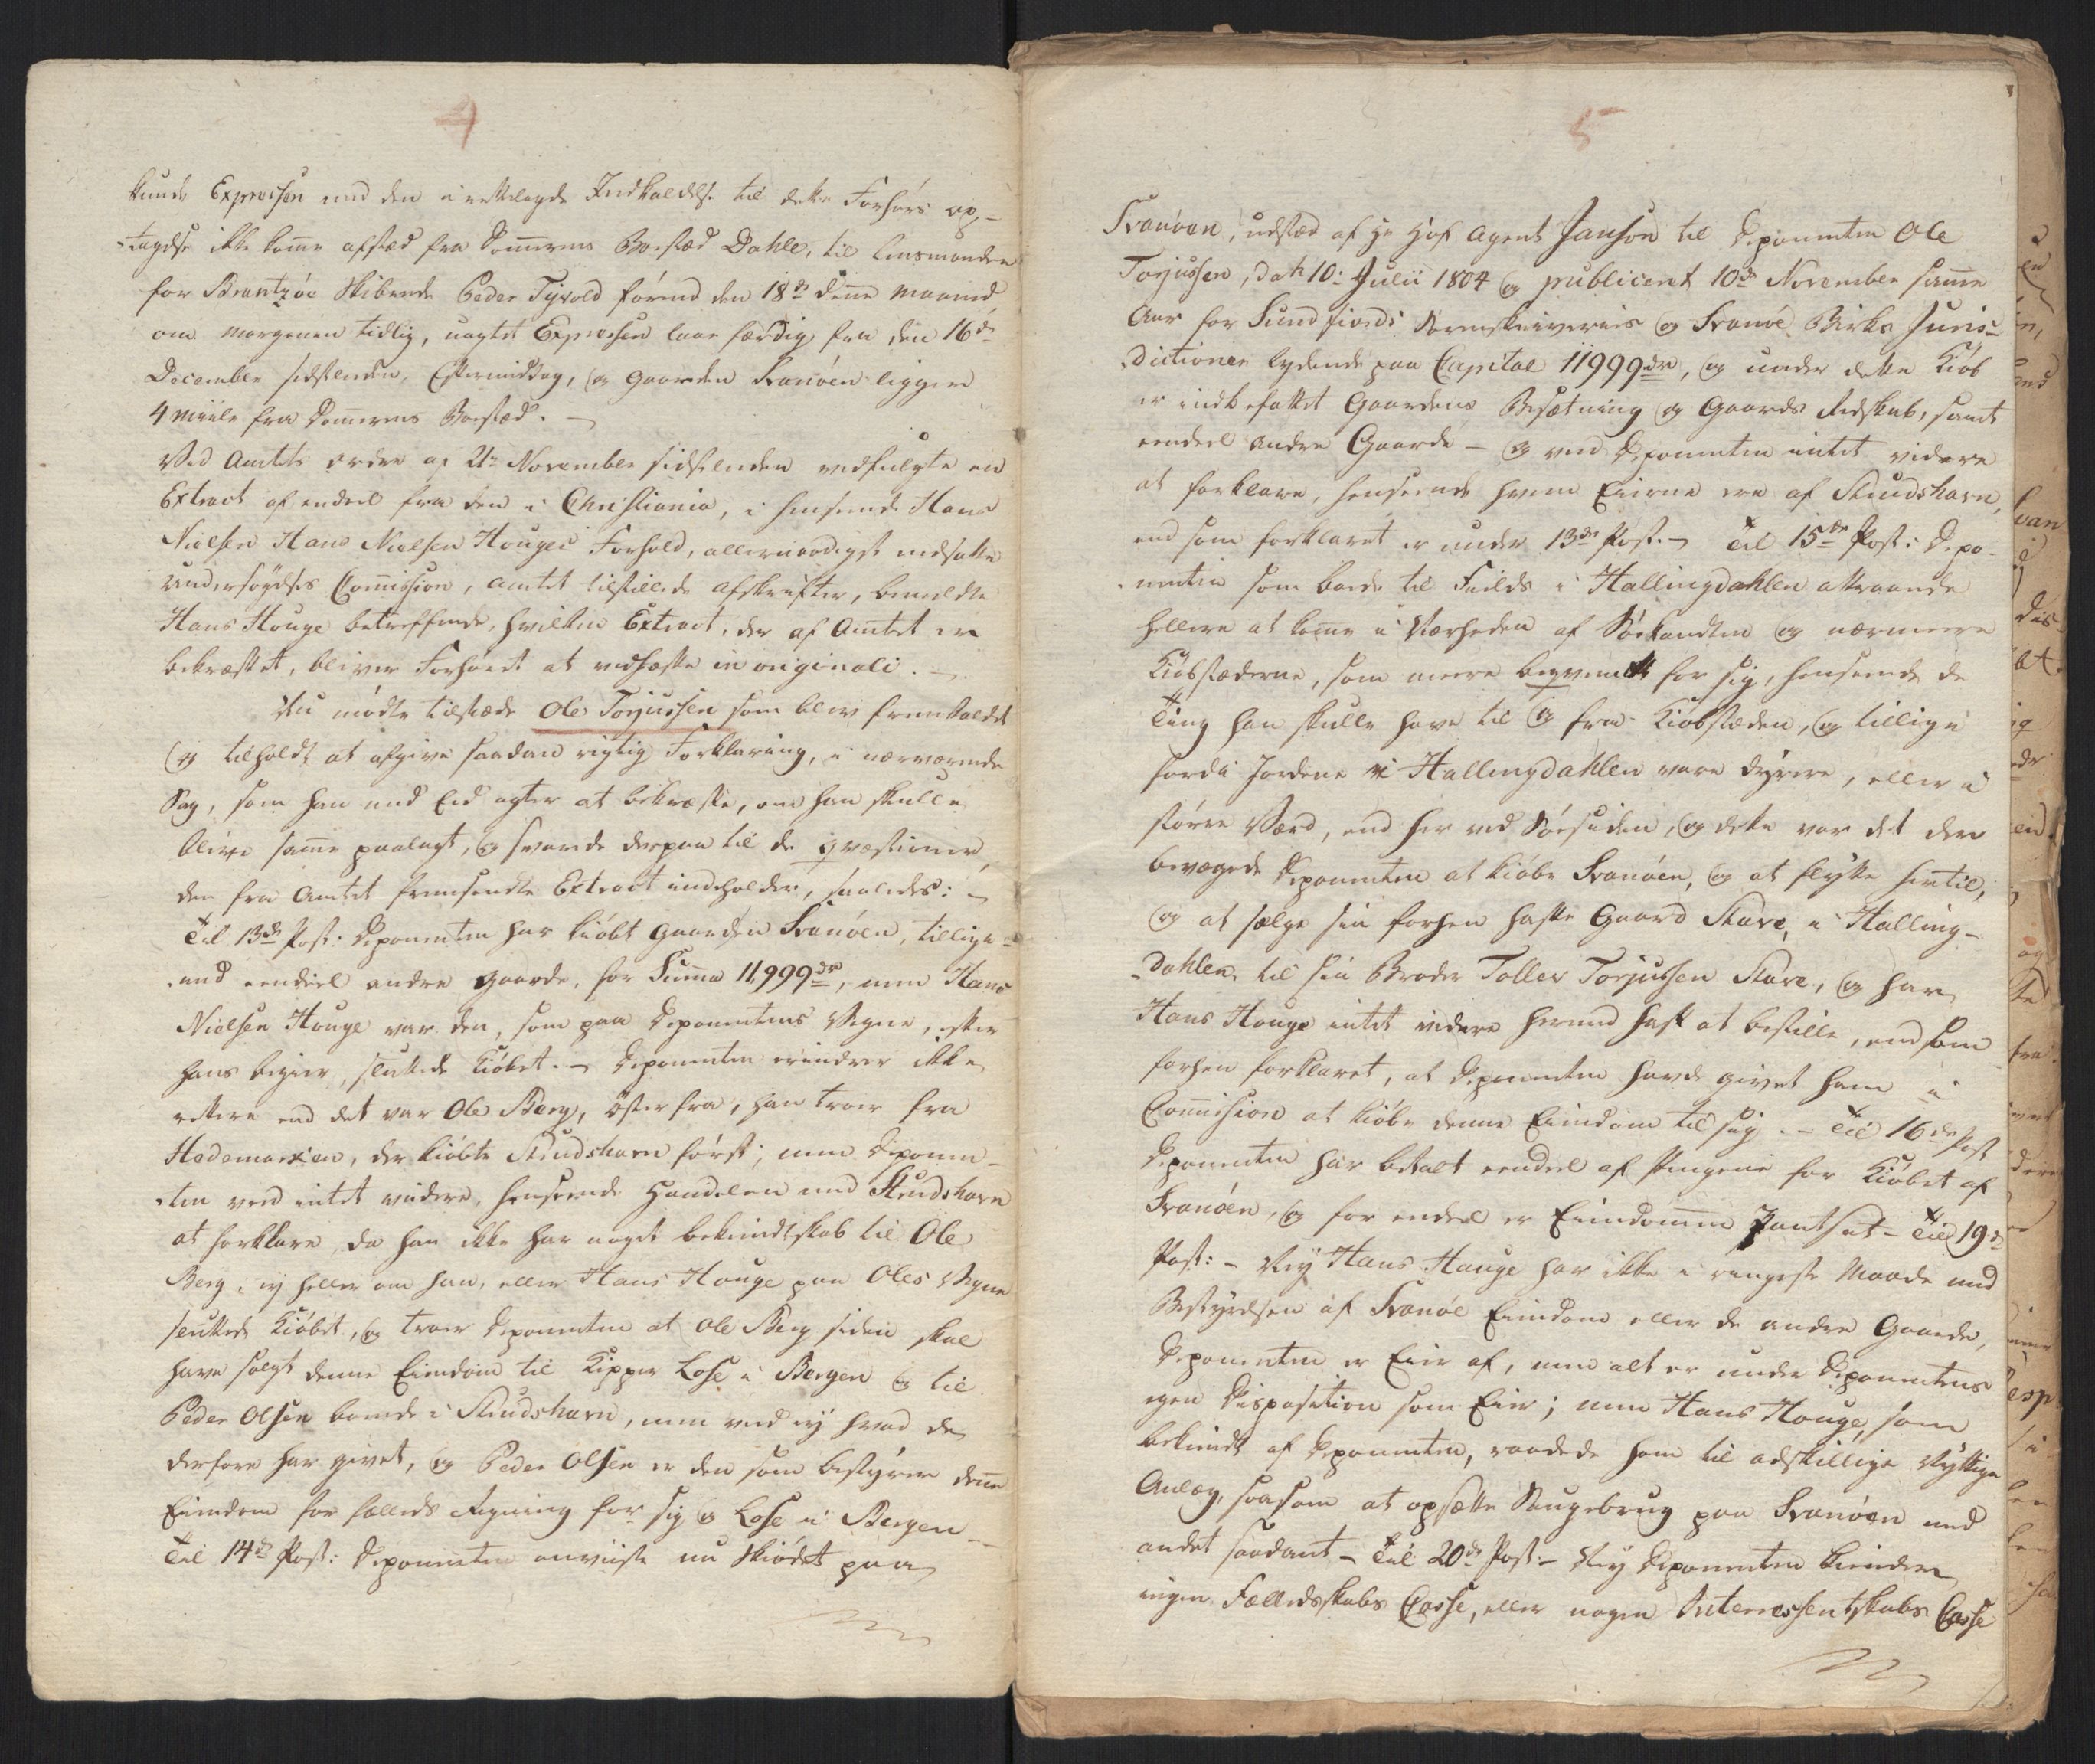 4
kunde Expressen med den i rettelagde Indkaldelse til dette Forhørs op-
tagelse ikke komme afsted fra Dommerens Boested Dahle, til Lensmanden
for Brantzøe Skibrede Peder Tysvold førend den 18de denne Maaned
om Morgenen tidlig, uagtet Expressen laae færdig fra den 16de
December sidstleden, Eftermiddag, og Gaarden Svanøen ligger
4 Miile fra Dommerens Boested. –
Ved Amtets Ordre af 21de November sidstleden vedfulgte en
Extract af endeel fra den i Christiania, i henseende Hans
Nielsen Hans Nielsen Houges Forhold, allernaadigst nedsatte
Undersøgelses Commission, Amtet tilstillede Afskrifter, bemeldte
Hans Houge betreffende, hvilken Extract, der af Amtet er
bekræftet, bliver Forhøret at vedhæfte in originali. –
Nu mødte tilstæde Ole Torjussen som blev fremkaldet
og tilholdt at afgive saadan rigtig Forklaring, i nærværende
Sag, som han med Eed agter at bekræfte, om han skulle
blive samme paalagt, og svarede derpaa til de qvæstioner,
den fra Amtet fremsendte Extract indeholder, saaledes: –
Til 13de Post: Deponenten har kiøbt Gaarden Svanøen, tillige-
med eendeel andre Gaarde, for Summa 11,999 rdr, men Hans
Nielsen Houge var den, som paa Deponentens Vegne, efter
hans begier, sluttede Kiøbet. – Deponenten erindrer ikke
rettere end det var Ole Berg, øster fra, han troer fra
Hedemarken, der kiøbte Studshavn først; men Deponen-
ten veed intet videre, henseende Handelen med Studshavn
at forklare, da han ikke har noget bekiendtskab til Ole
Berg, ey heller om han, eller Hans Houge paa Oles Vegne
sluttede Kiøbet, og troer Deponenten at Ole Berg siden skal
have solgt denne Eiendom til Kipper Lose i Bergen og til
Peder Olsen boende i Studshavn, men veed ey hvad de
derfore har givet, og Peder Olsen er den som bestyrer denne
Eiendom for fælleds Regning for sig og Lose i Bergen –
Til 14de Post: Deponenten anviiste nu Skiødet paa
5
Svanøen, udstæd af Hr Hof Agent Janson til Deponenten Ole
Torjussen, dat: 10: Julii 1804 og publiceret 10de November samme
Aar for Sundfiords Sorenskriveries og Svanøe Birks Juris-
dictioner lydende paa Capital 11999 rdr, og under dette Kiøb
er indbefattet Gaardens Besætning og Gaards Redskab, samt
eendeel andre Gaarde – og veed Deponenten intet videre
at forklare, henseende hvem Eierne ere af Studshavn,
end som forklaret er under 13de Post. – Til 15de Post: Depo-
nenten som boede til Feilds i Hallingdahlen attraaede
hellere at komme i Nærheden af Søekandten og nærmere
Kiøbstæderne, som meere beqvemt for sig, henseende de
Ting han skulle have til og fra Kiøbstæden, og tillige
fordi Jordene i Hallingdahlen vare dyrere, eller i
større Værd, end her ved Søesiden, og dette var det der
bevægede Deponenten at kiøbe Svanøen, og at flytte hertil,
og at sælge sin forhen havte Gaard Stave, i Halling-
dahlen, til sin Broder Tollev Torjussen Stave, og har
Hans Houge intet videre hermed haft at bestille, end som
forhen forklaret, at Deponenten havde givet ham i
Commission at kiøbe denne Eiendom til sig. – Til 16de Post
Deponenten har betalt eendeel af Pengene for Kiøbet af
Svanøen, og for endeel er Eiendommen Pantsat – Til 19de
Post: – Ney Hans Hauge har ikke i ringeste Maade med
Bestyrelsen af Svanøe Eiendom eller de andre Gaarde,
Deponenten er Eier af, men alt er under Deponentens
egen Disposition som Eier; men Hans Houge, som
bekiendt af Deponenten, raadede ham til adskillige Nyttige
Anlæg, saasom at opsætte Saugebrug paa Svanøen med
andet saadant – Til 20de Post – Ney Deponenten kiender
ingen Fælledsskabs Casse, eller nogen Interessentskabs Casse